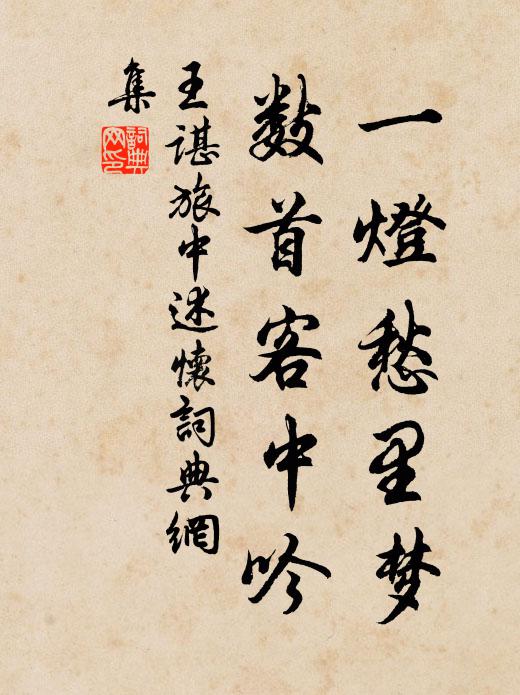 一燈愁里梦
数首客中吟
王谌旅中述懷詞典網
集
詞典
网印